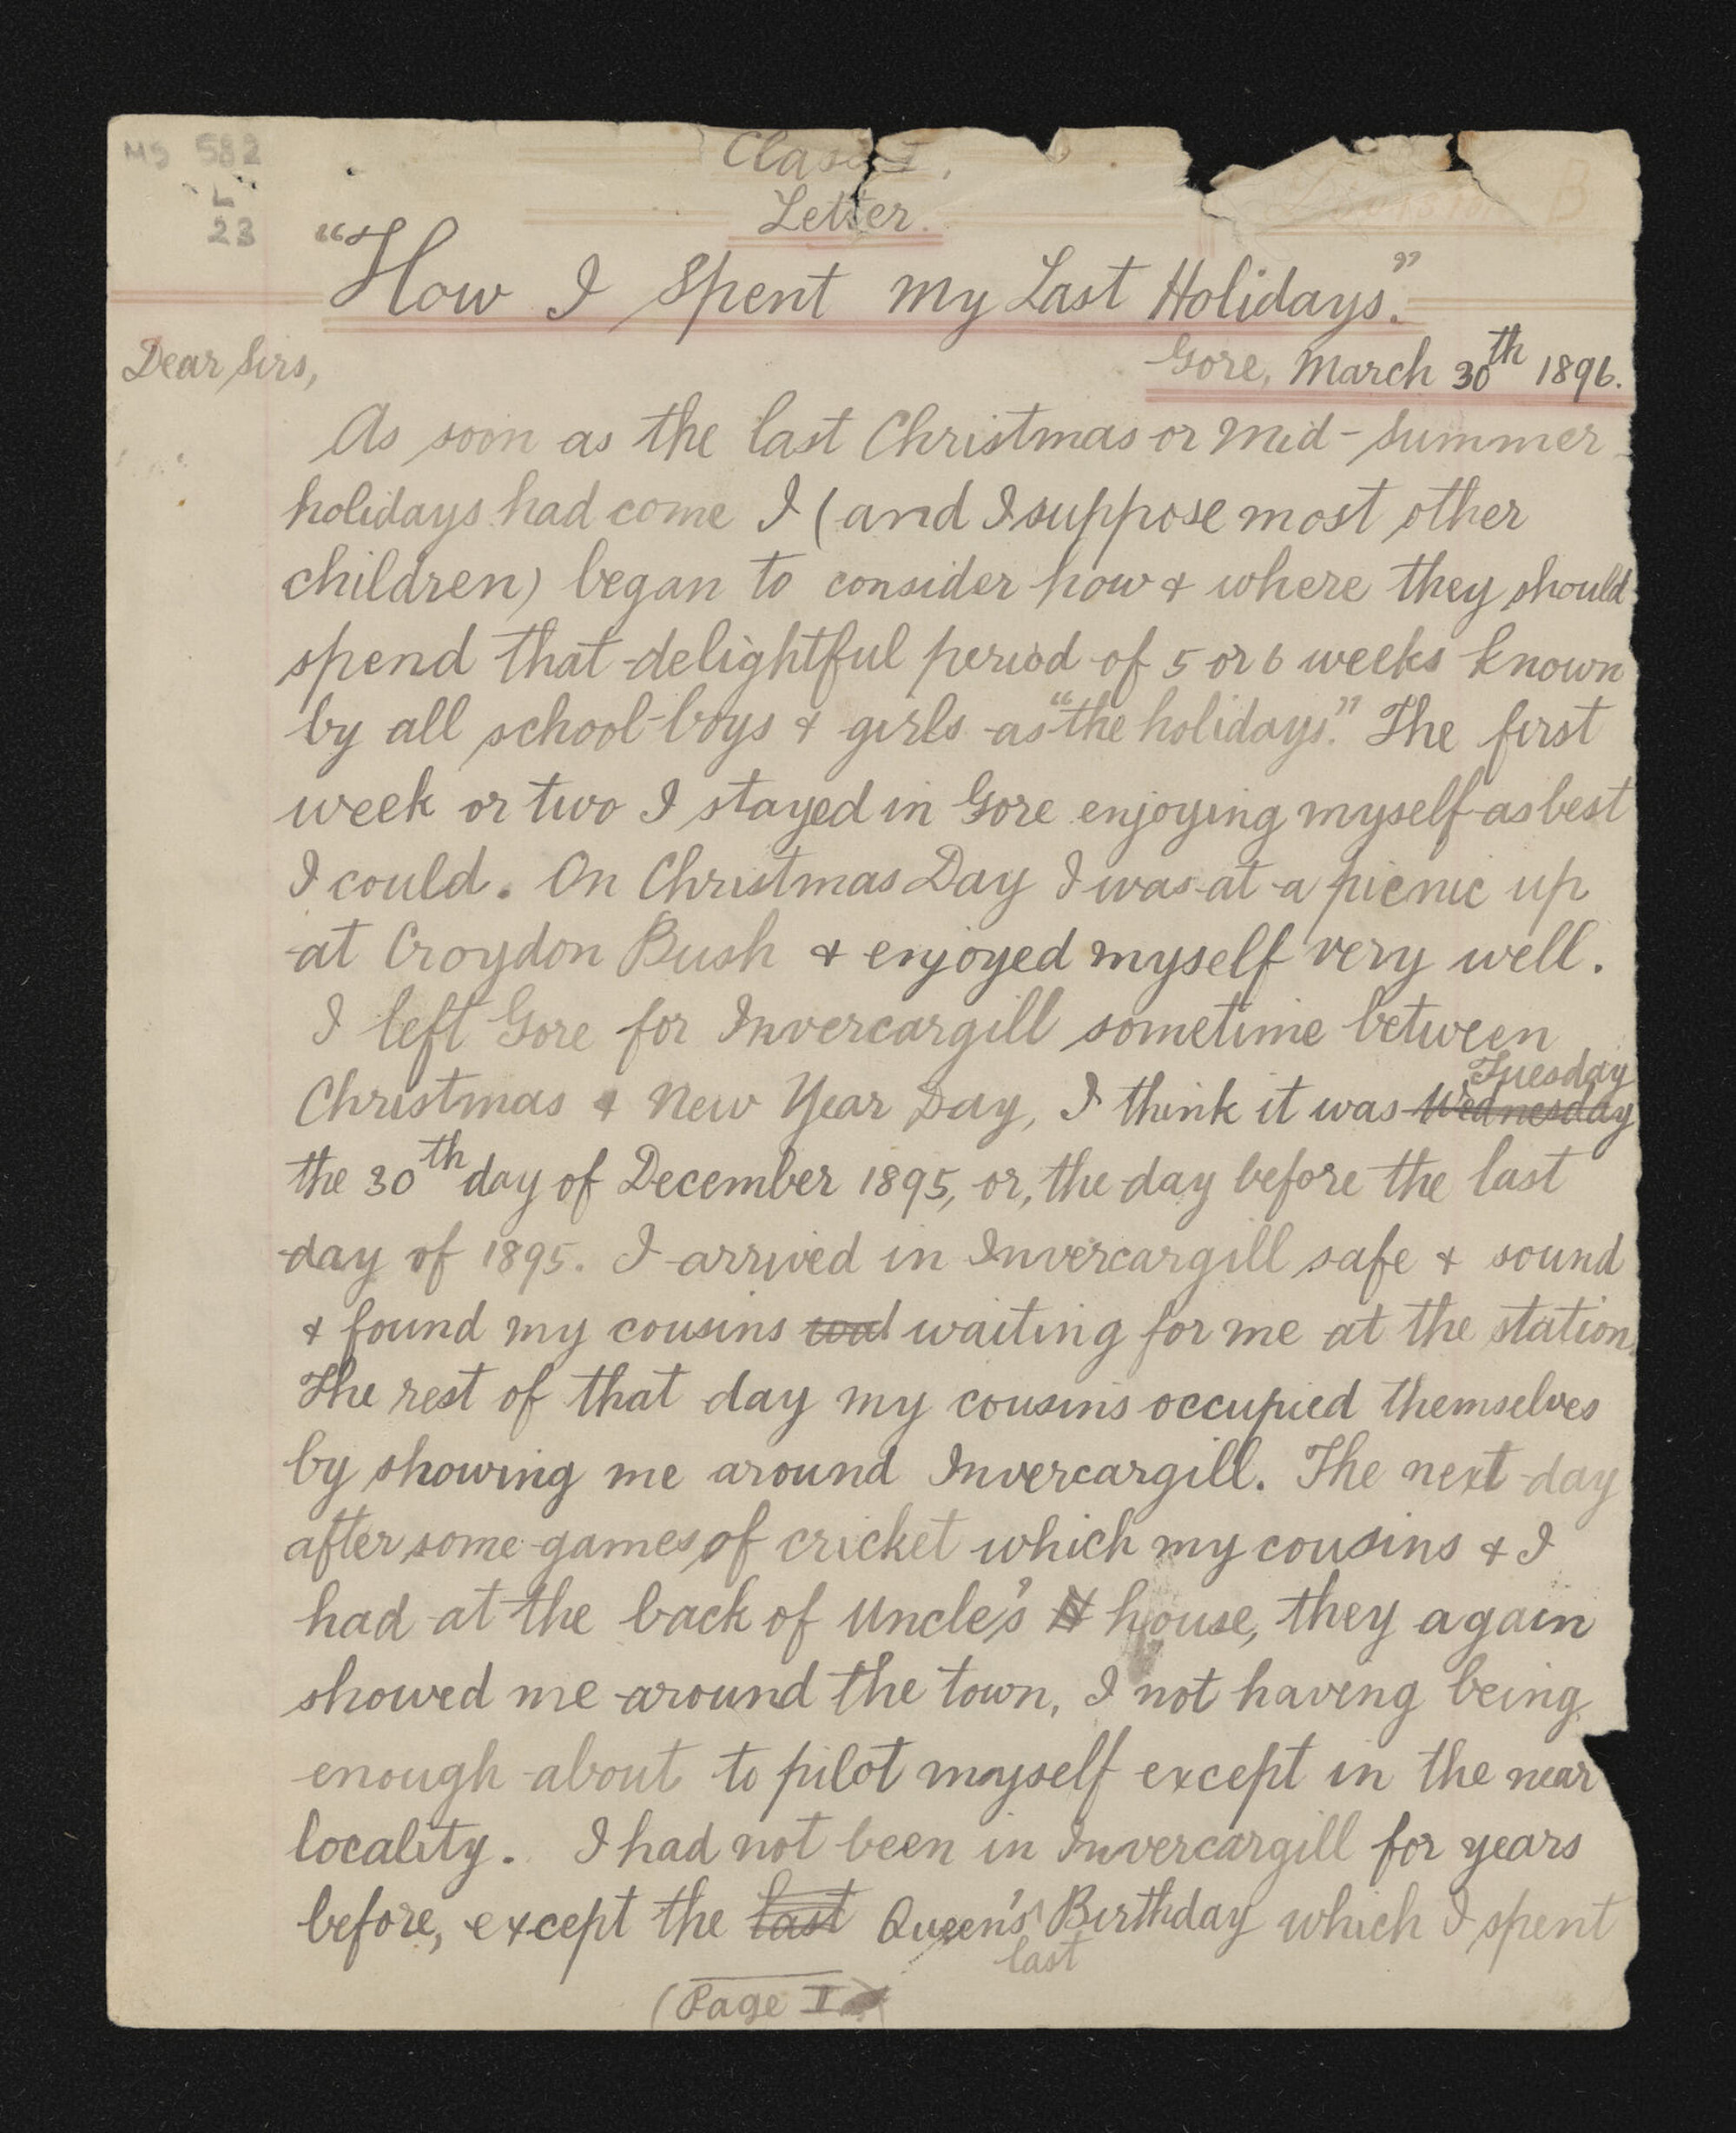 MS 582
"L"
23
Class I.
Letter.
"How I Spent My Last Holidays."
Gore, March 30th 1896.
Dear Sirs,
As soon as the last Christmas or Mid-Summer
holidays had come I (and I suppose most other
children) began to consider how & where they should
spend that delightful period of 5 or 6 weeks known
by all school-boys & girls as "the holidays." The first
week or two I stayed in Gore enjoying myself as best
I could. On Christmas Day I was at a picnic up
at Croydon Bush & enjoyed myself very well.
I left Gore for Invercargill sometime between
Tuesday
Christmas & New Year Day, I think it was Wednesday
the 30th day of December 1895, or, the day before the last
day of 1895. I arrived in Invercargill safe & sound
& found my cousins wai waiting for me at the station.
The rest of that day my cousins occupied themselves
by showing me around Invercargill. The next day
after some games of cricket which my cousins & I
had at the back of Uncle's house, they again
showed me around the town, I not having being
enough about to pilot myself except in the near
locality. I had not been in Invercargill for years
before, except the last Queen's Birthday which I spent
last
(Page I)